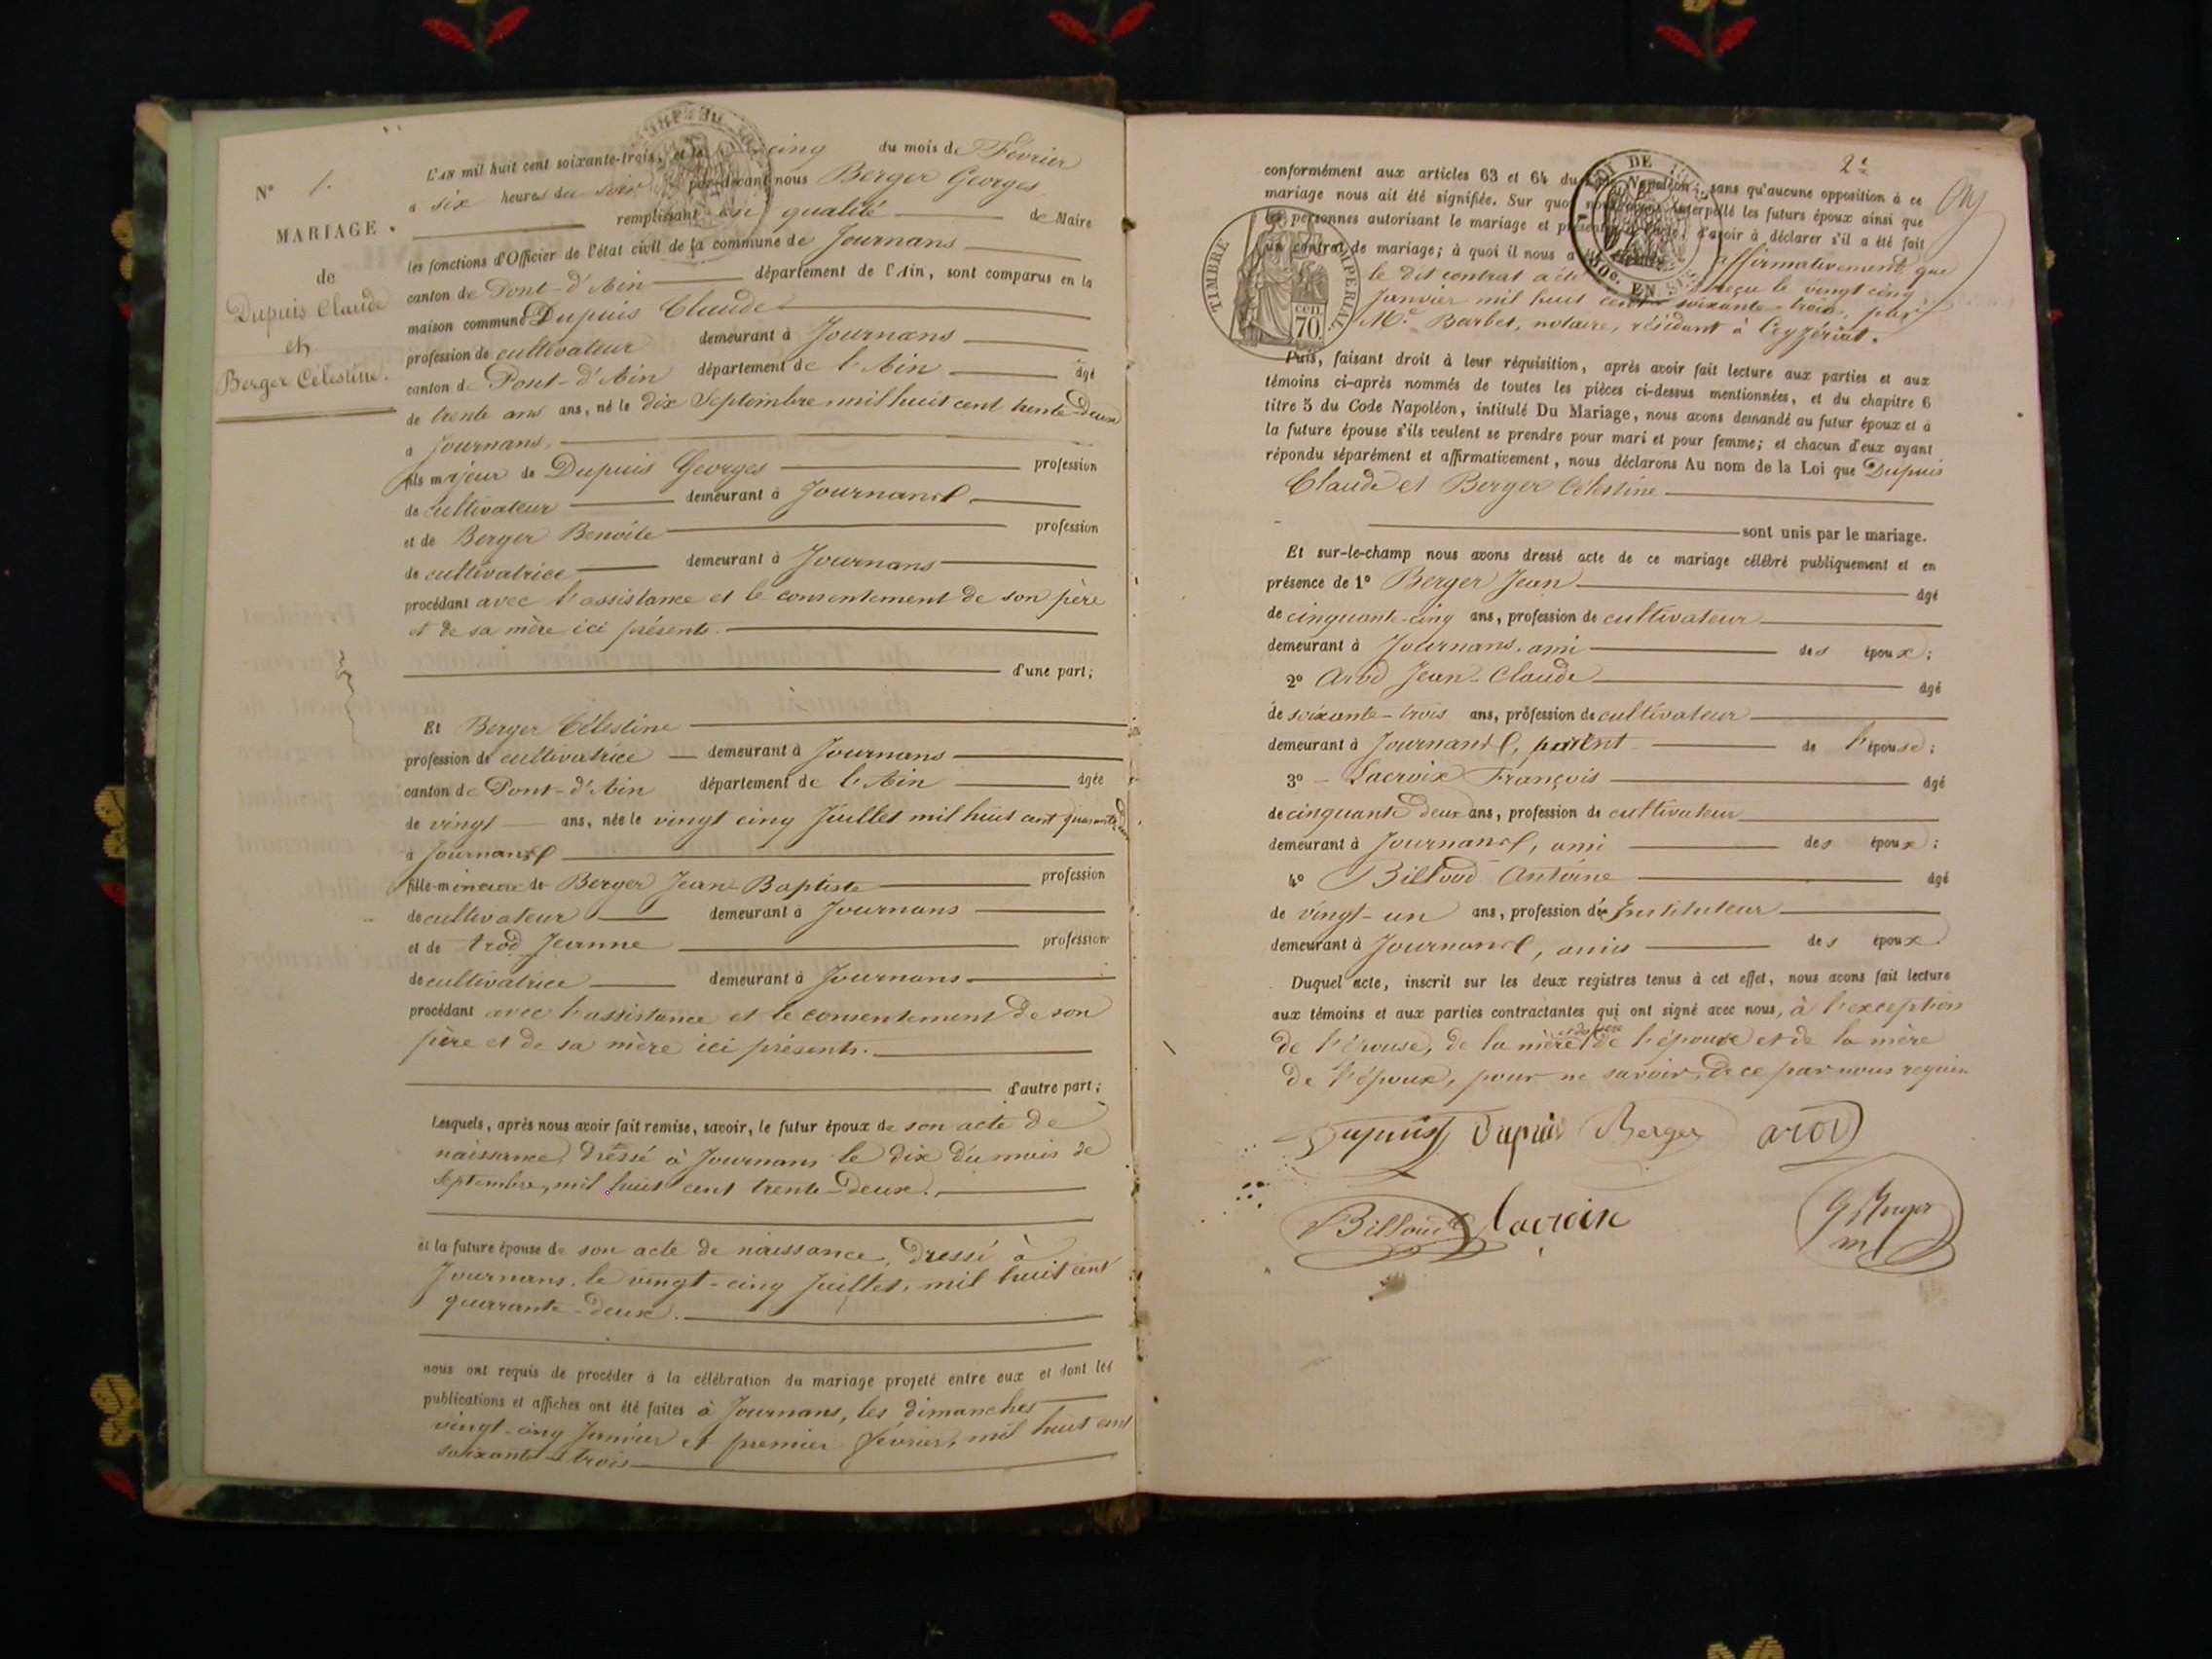 N° 1.
MARIAGE.
de
Dupuis Claude
et
Berger Célestine.
L'AN mil huit cent soixante-trois, et le cinq du mois de Février
a six heures du soir par-devant nous Berger Georges
remplissant en qualité de Maire
les fonctions d'Officier de l'état civil de la commune de Journans
canton de Pont-d'Ain département de l'Ain, sont comparus en la
maison commune Dupuis Claude
profession de cultivateur demeurant à Journans
canton de Pont-d'Ain département de l'Ain âgé
de trente ans ans, né le dix Septembre mil huit cent trente-deux
a Journans.
fils majeur de Dupuis Georges profession
de cultivateur demeurant à Journans
et de Berger Benoîte profession
de cultivatrice demeurant à Journans
procédant avec l'assistance et le consentement de son père
et de sa mère ici présents.
d'une part;
Et Berger Célestine
profession de cultivatrice demeurant à Journans
canton de Pont-d'Ain département de l'Ain âgée
de vingt ans, née le vingt cinq Juillet mil huit cent quarante deux
a Journans
fille mineure de Berger Jean-Baptiste profession
de cultivateur demeurant à Journans
et de Arod Jeanne profession
de cultivatrice demeurant à Journans
procédant avec l'assistance et le consentement de son
père et de sa mère ici présents.
d'autre part;
Lesquels, après nous avoir fait remise, savoir, le futur époux de son acte de
naissance, dressé à Journans le dix du mois de
Septembre, mil huit cent trente-deux.
et la future épouse de son acte de naissance, dressé à
Journans, le vingt-cinq Juillet, mil huit cent
quarante-deux.
nous ont requis de procéder à la célébration du mariage projeté entre eux et dont les
publications et affiches ont été faites à Journans, les dimanches
vingt-cinq Janvier et premier Février, mil huit cent
soixante-trois
2e
conformément aux articles 63 et 64 du Code Napoléon; sans qu'aucune opposition à ce
mariage nous ait été signifiée. Sur quoi nous avons interpellé les futurs époux ainsi que
les personnes autorisant le mariage et présentes à l'acte, d'avoir à déclarer s'il a été fait
un contrat de mariage; à quoi il nous a affirmativement que
le dit contrat a été reçu le vingt cinq
Janvier mil huit cent soixante-trois, par
Me Barbet, notaire, résidant à Ceyzériat.
TIMBRE IMPERIAL
70 cen
50c. EN SUS
Puis, faisant droit à leur réquisition, après avoir fait lecture aux parties et aux
témoins ci-après nommés de toutes les pièces ci-dessus mentionnées, et du chapitre 6
titre 5 du Code Napoléon, intitulé Du Mariage, nous avons demandé au futur époux et à
la future épouse s'ils veulent se prendre pour mari et pour femme; et chacun d'eux ayant
répondu séparément et affirmativement, nous déclarons Au nom de la Loi que Dupuis
Claude et Berger Célestine
sont unis par le mariage.
Et sur-le-champ nous avons dressé acte de ce mariage célébré publiquement et en
présence de 1° Berger Jean âgé
de cinquante-cinq ans, profession de cultivateur
demeurant à Journans, ami des époux;
2° Arod Jean-Claude âgé
de soixante-trois ans, profession de cultivateur
demeurant à Journans, parent de l'épouse;
3° Lacroix François âgé
de cinquante deux ans, profession de cultivateur
demeurant à Journans, ami des époux;
4° Billoud Antoine âgé
de vingt-un ans, profession d'Instituteur
demeurant à Journans, amis des époux
Duquel acte, inscrit sur les deux registres tenus à cet effet, nous avons fait lecture
aux témoins et aux parties contractantes qui ont signé avec nous, à l'exception
de l'épouse, de la mère et du père de l'épouse et de la mère
de l'époux, pour ne savoir, de ce par nous requis.
Dupuis Dupuis Berger arod
Billoud Lacroix G Berger
m